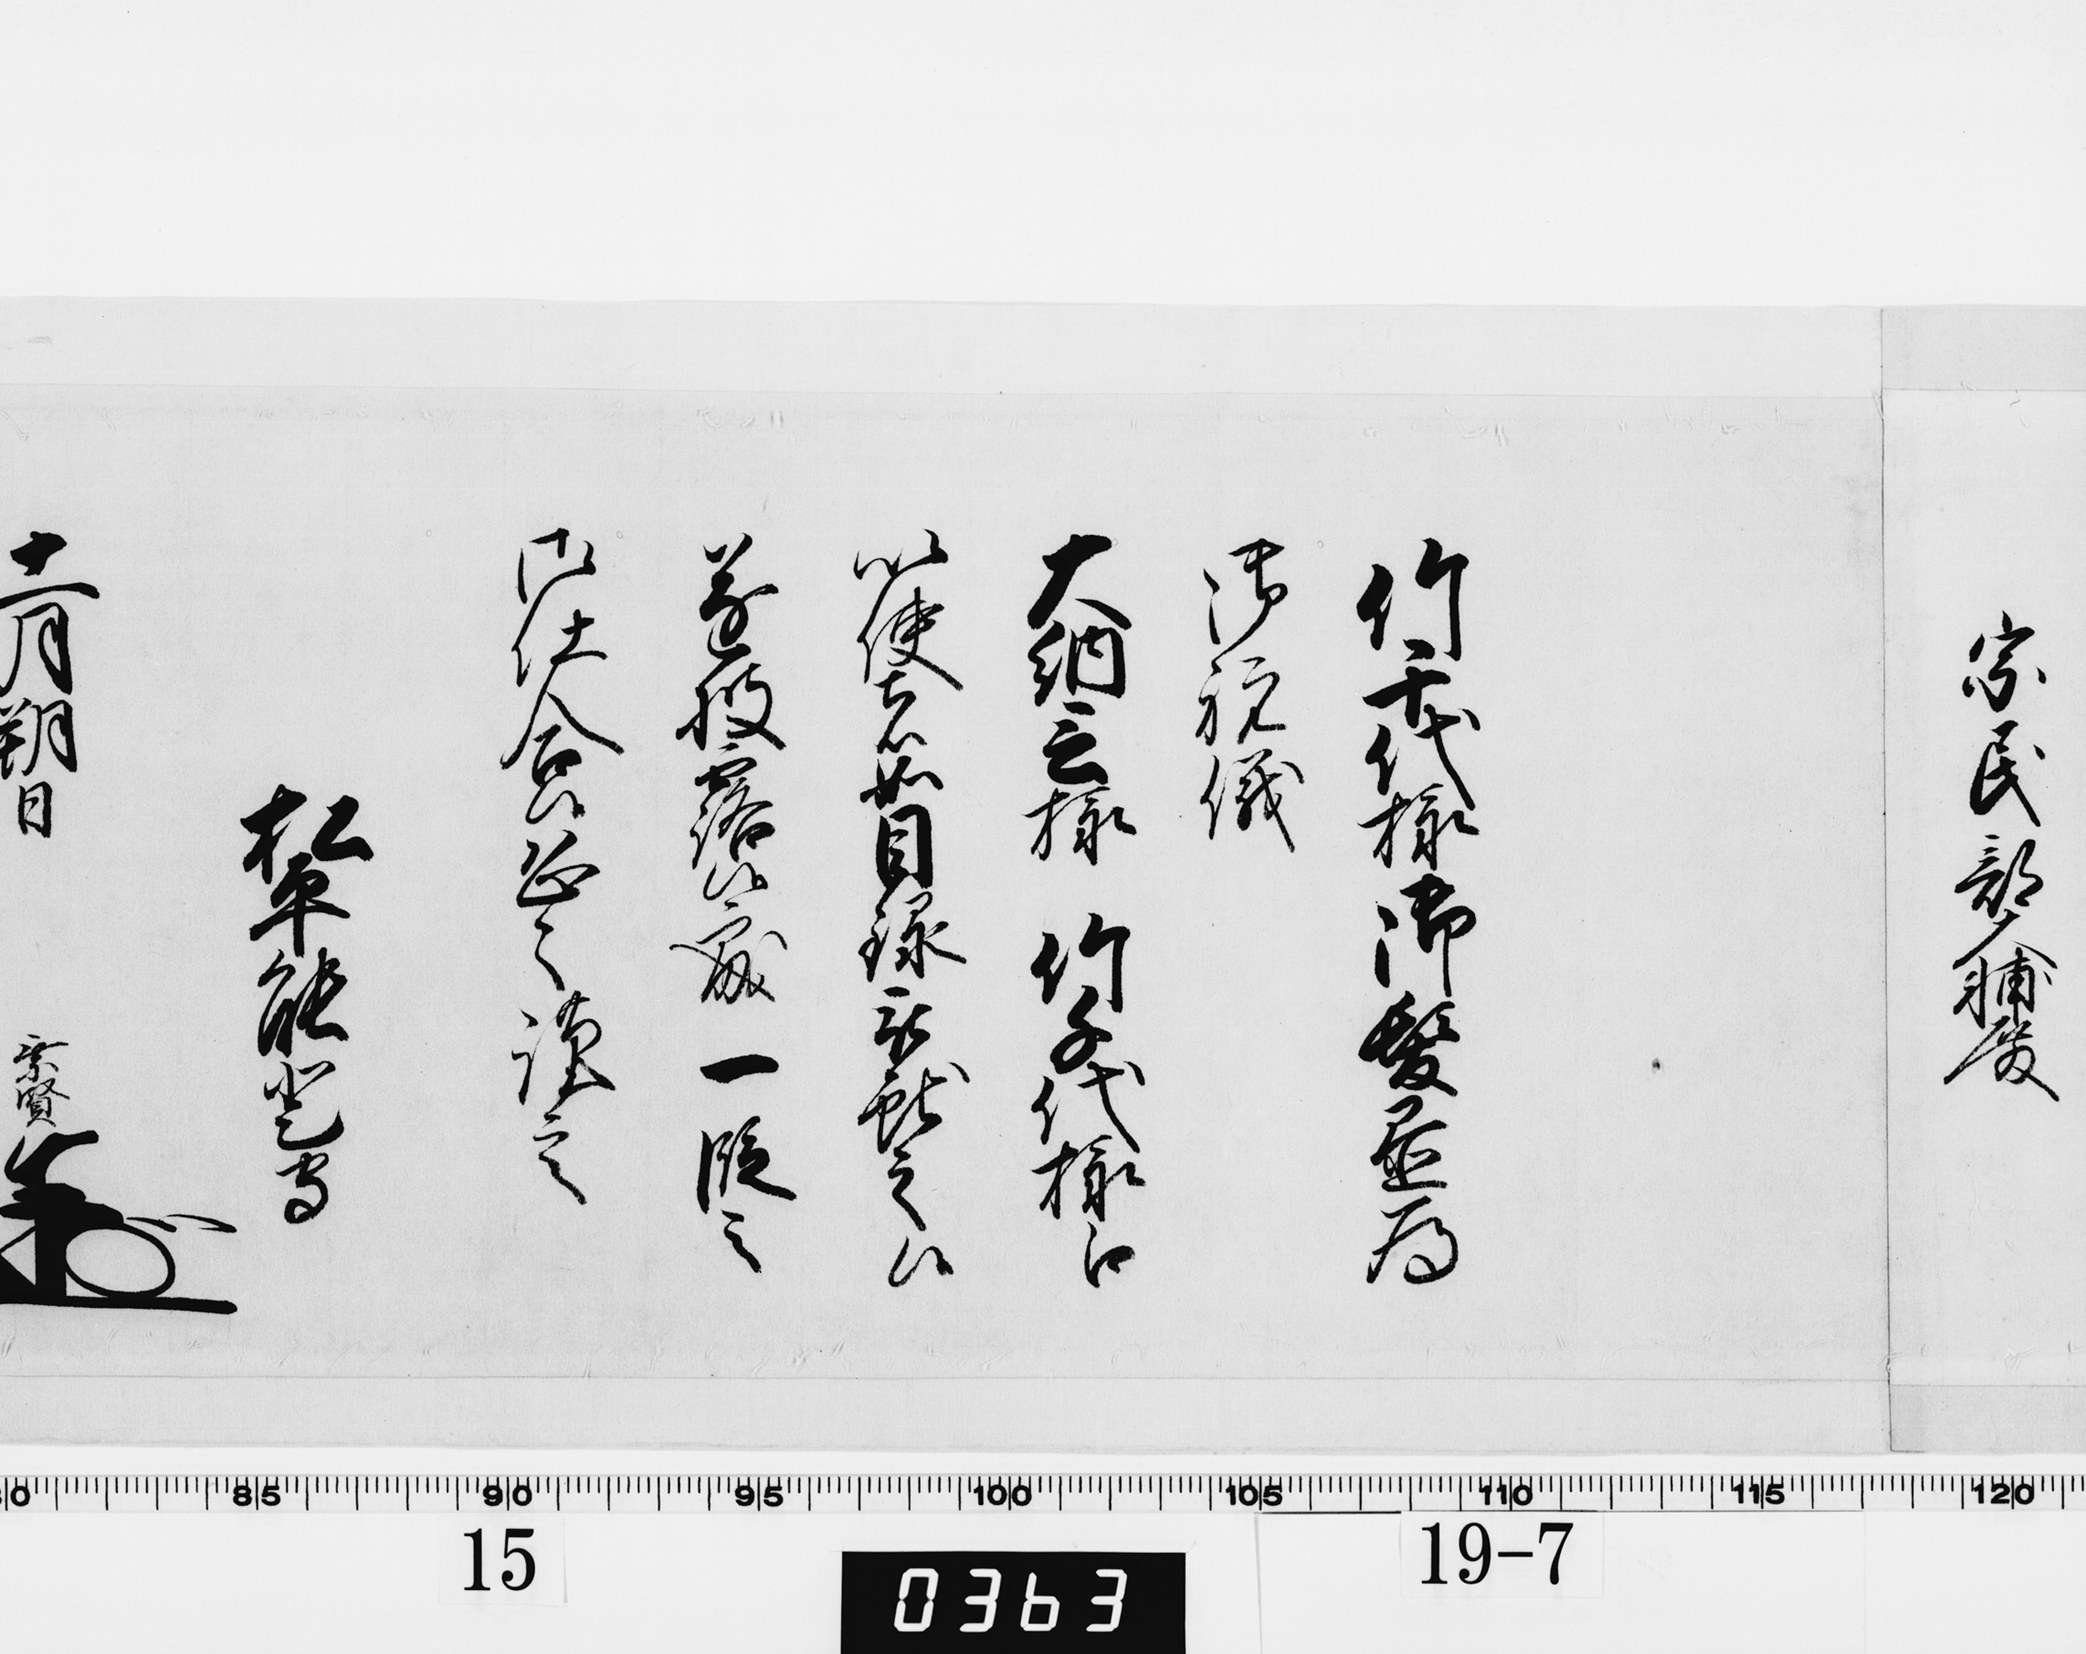 宗民部少輔殿
竹千代様御髪置為
御祝儀
大納言様 竹千代様江
以使者如目録被献之候
遂披露候處一段之
御仕合候恐々謹言
松平能登守
十二月朔日 乗賢
80 85 90 95 100 105 110 115 120
15
19-7
0363